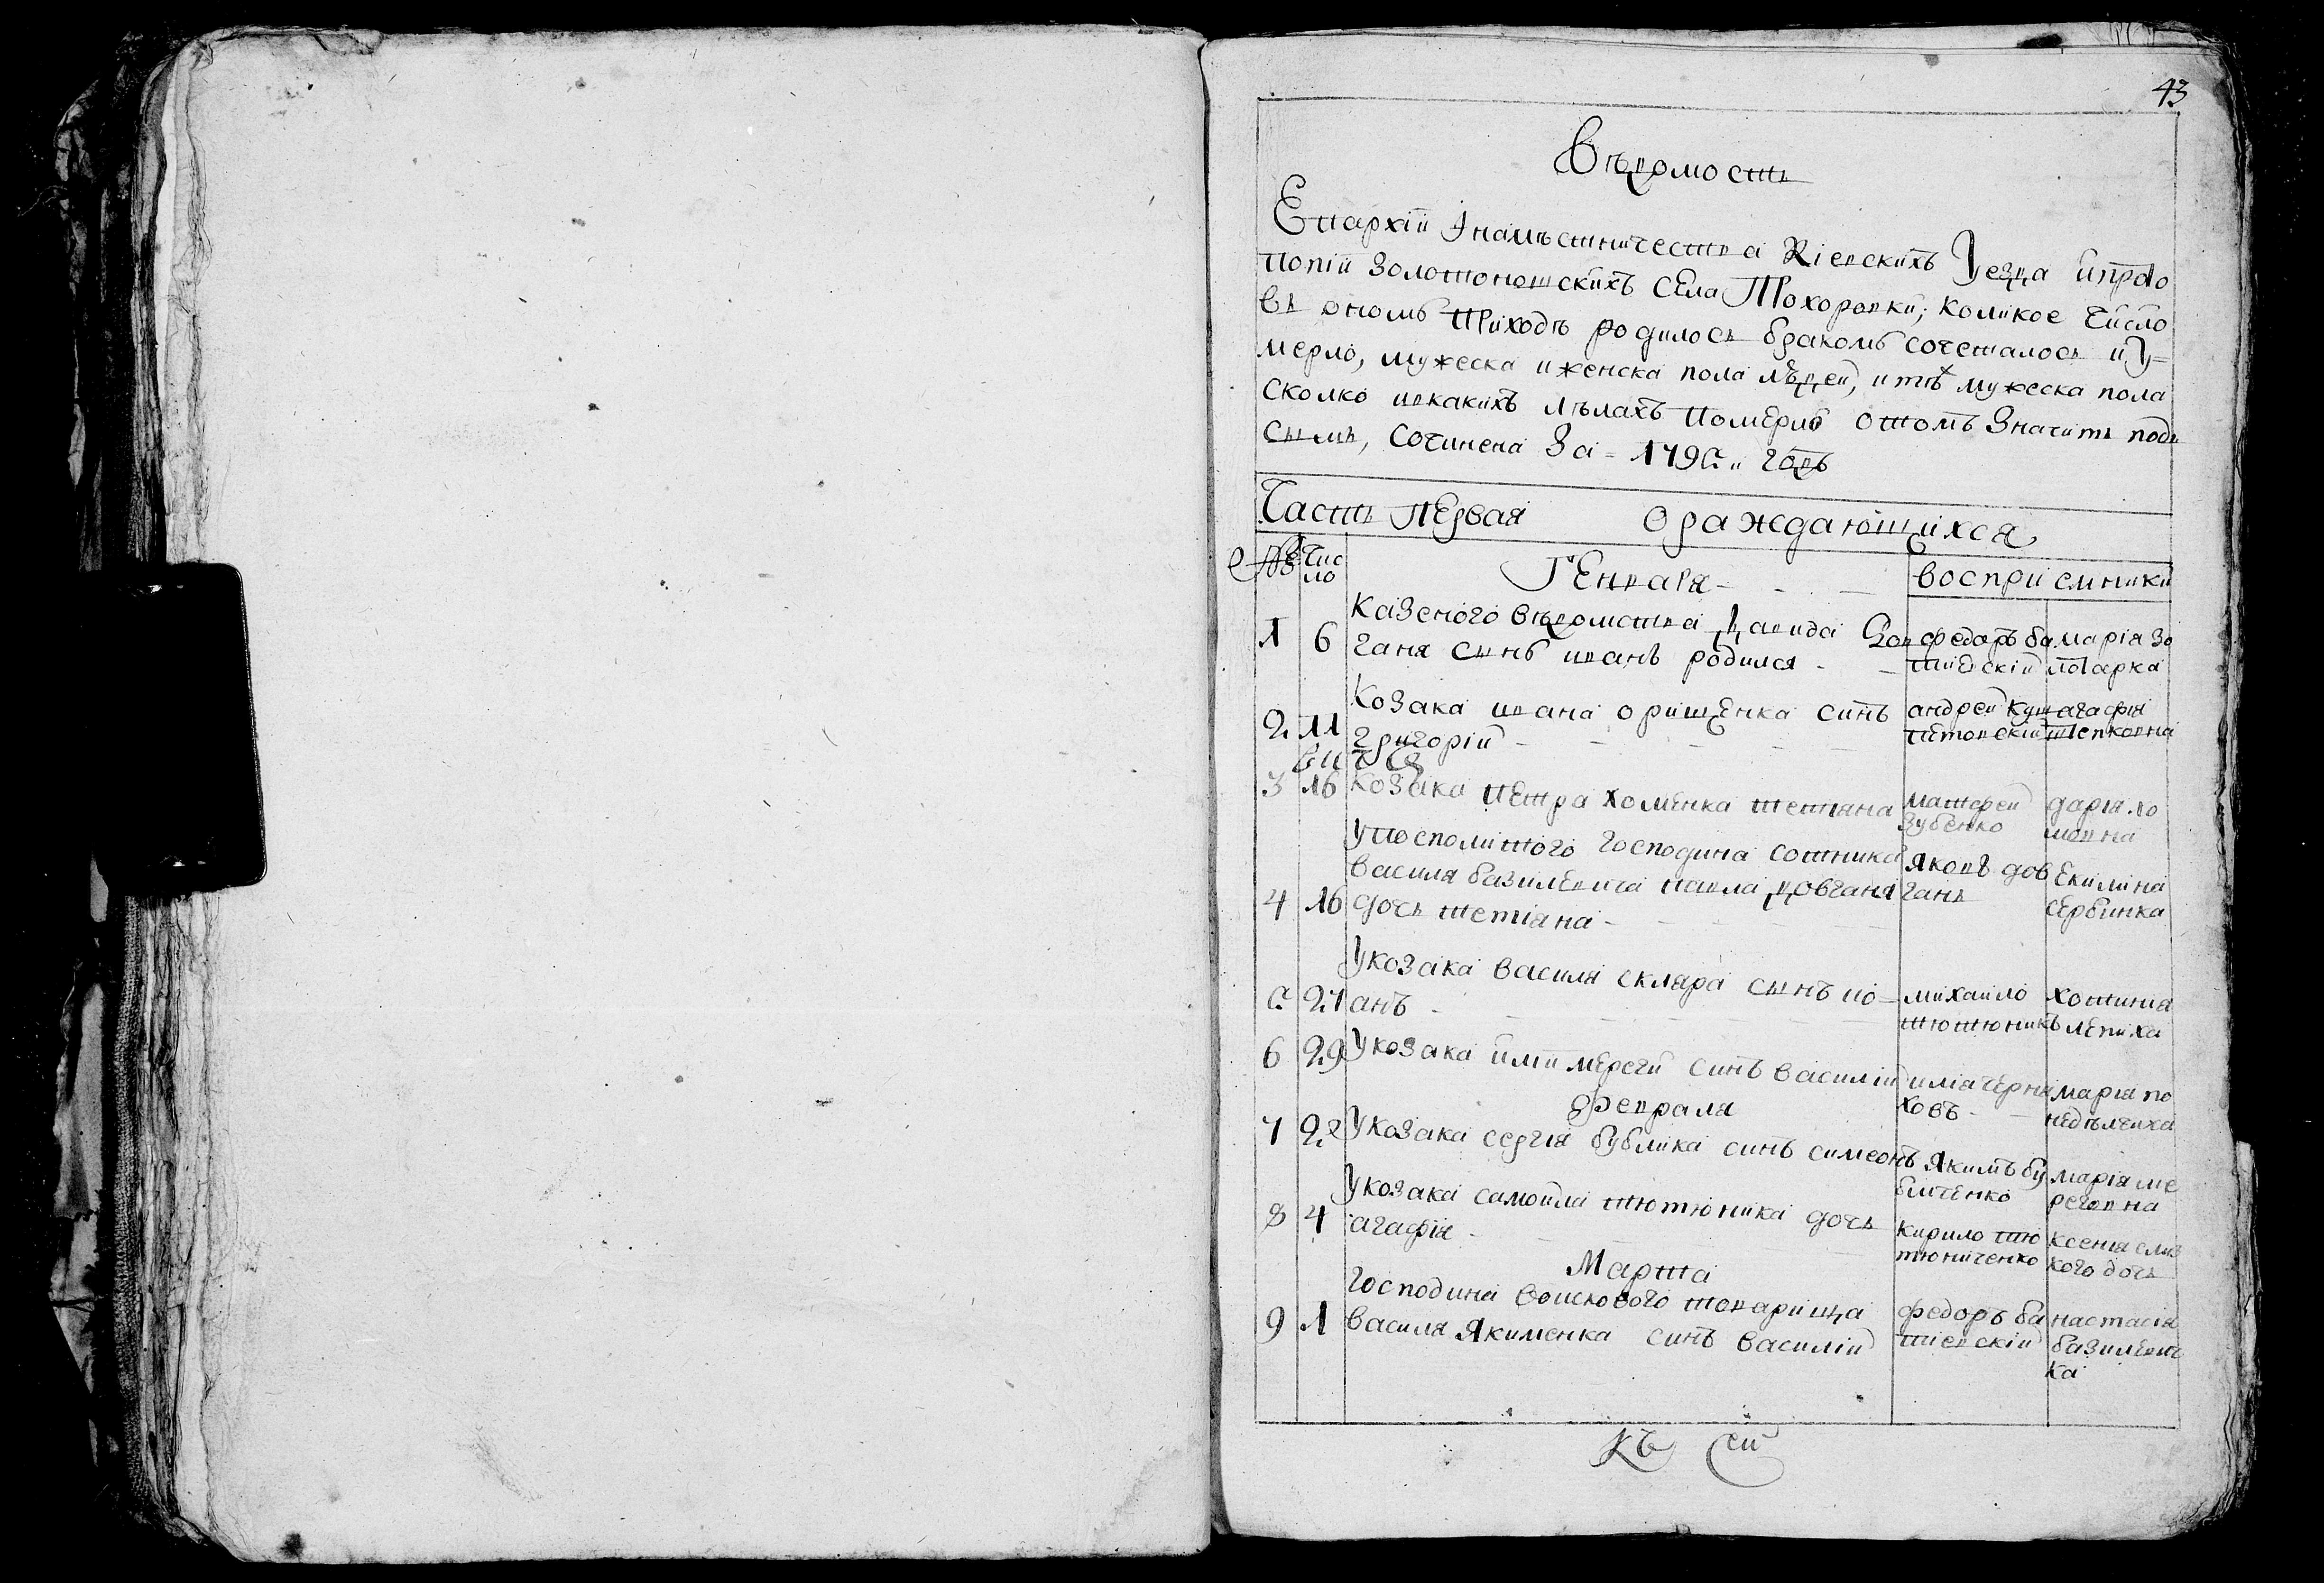 43
Вѣдомость
Епархіи Ӏнамѣстничества Кіевскихъ Уезда ипрото
попіи Золотоношскихъ Села Прохоровки; коликое число
вь ономъ приходѣ родилось бракомъ сочеталось иУ=
мерло, мужеска иженска пола людей, итѣх мужеска пола
сколко ивкакихъ лѣтахъ Померло отомъ Значитъ подъ
симъ, Сочинена За = 1795 „ годъ
Часть Первая ораждающихся
№ Чис
ло
Генваря - - - воспріемники
1 6 Казеного вѣдомства Давида Дов
ганя синъ иванъ родился - - федоръ ба
тіевскій марія Зо
лотарка
2 11 Козака ивана орищенка синъ
григорій - - - - - андрей
агафія
3 16 Козака Петра Хоменка тетяна
матфей
Зубенко дарія
4 16 У посполитого господина сотника
василя базилевича павла довганя
дочь тетіана - - - яковъ дов
гань Екилина
сербинка
5 27 У козака василя скляра синъ ио-
анъ - - - - - михайло
тютюникъ хотиния
лепиха
6 29 У козака илии мереги синъ василій
илія
ховъ - марія по
недѣлчиха
Февраля
7 2 У козака сергія бублика синъ симеонъ
Якимъ бу
бличенко марія ме
реговна
8 4 У козака самойла тютюника дочь
агафія - - - кирило тю
тюниченко ксенія
кого дочь
Марта
9 1 господина войскового товарища
василя Якименка синъ василій
федоръ ба
тіевскій настасія
базилевич
ка
къ сей